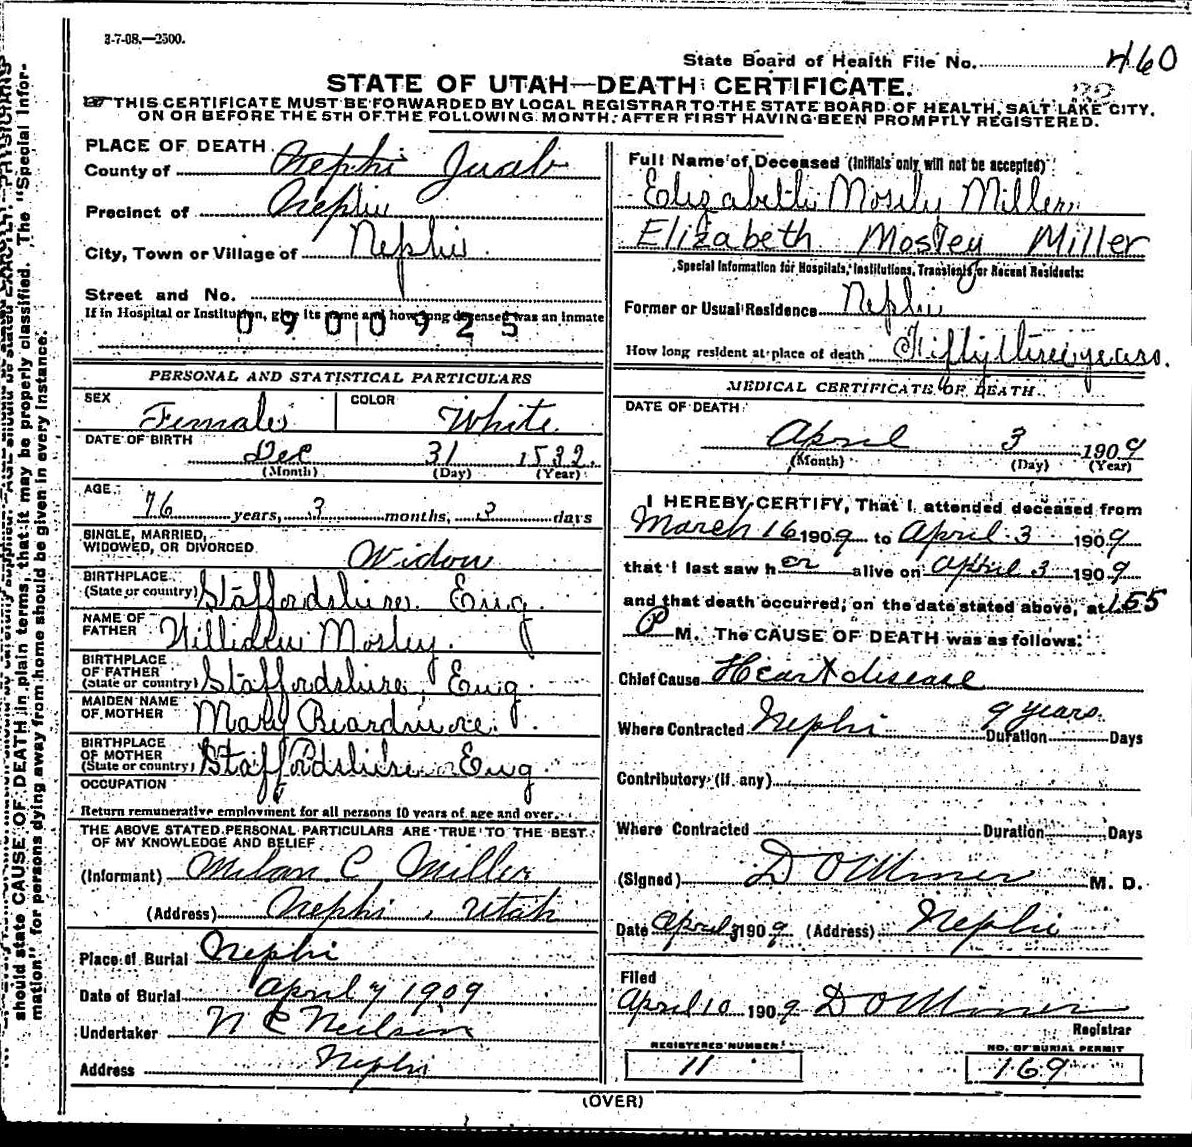 3-7-08.—2500.
State Board of Health File No. 460
STATE OF UTAH—DEATH CERTIFICATE.
THIS CERTIFICATE MUST BE FORWARDED BY LOCAL REGISTRAR TO THE STATE BOARD OF HEALTH, SALT LAKE CITY,
ON OR BEFORE THE 5TH OF THE FOLLOWING MONTH, AFTER FIRST HAVING BEEN PROMPTLY REGISTERED.
PLACE OF DEATH
County of Nephi Juab
Precinct of Nephi
City, Town or Village of Nephi
Street and No.
If in Hospital or Institution, give its name and how long deceased was an inmate
0900925
PERSONAL AND STATISTICAL PARTICULARS
SEX Female COLOR White
DATE OF BIRTH
Dec 31 1832
(Month) (Day) (Year)
AGE 76 years, 3 months, 3 days
SINGLE, MARRIED,
WIDOWED, OR DIVORCED Widow
BIRTHPLACE
(State or country) Staffordshire Eng.
NAME OF
FATHER William Mosley
BIRTHPLACE
OF FATHER
(State or country) Staffordshire, Eng.
MAIDEN NAME
OF MOTHER Mary Beardmore
BIRTHPLACE
OF MOTHER
(State or country) Staffordshire Eng.
OCCUPATION
Return remunerative employment for all persons 10 years of age and over.
THE ABOVE STATED PERSONAL PARTICULARS ARE TRUE TO THE BEST
OF MY KNOWLEDGE AND BELIEF
(Informant) Milan C Miller
(Address) Nephi, Utah
Place of Burial Nephi
Date of Burial April 7 1909
Undertaker N C Neilsin
Address Nephi
Full Name of Deceased (Initials only will not be accepted)
Elizabeth Mosily Miller
Elizabeth Mosley Miller
Special Information for Hospitals, Institutions, Transients, or Recent Residents:
Former or Usual Residence Nephi
How long resident at place of death Fifty three years.
MEDICAL CERTIFICATE OF DEATH
DATE OF DEATH
April 3 1909
(Month) (Day) (Year)
I HEREBY CERTIFY, That I attended deceased from
March 16 1909 to April 3 1909
that I last saw her alive on April 3 1909
and that death occurred, on the date stated above, at 1.55
P M. The CAUSE OF DEATH was as follows:
Chief Cause Heart disease
Where Contracted Nephi 9 years Duration Days
Contributory (if any)
Where Contracted Duration Days
(Signed) D O Miner M. D.
Date April 3 1909 (Address) Nephi
Filed
April 10 1909 D O Miner
Registrar
REGISTERED NUMBER
11
NO. OF BURIAL PERMIT
169
(OVER)
should state CAUSE OF DEATH in plain terms, that it may be properly classified. The "Special Infor-
mation" for persons dying away from home should be given in every instance.